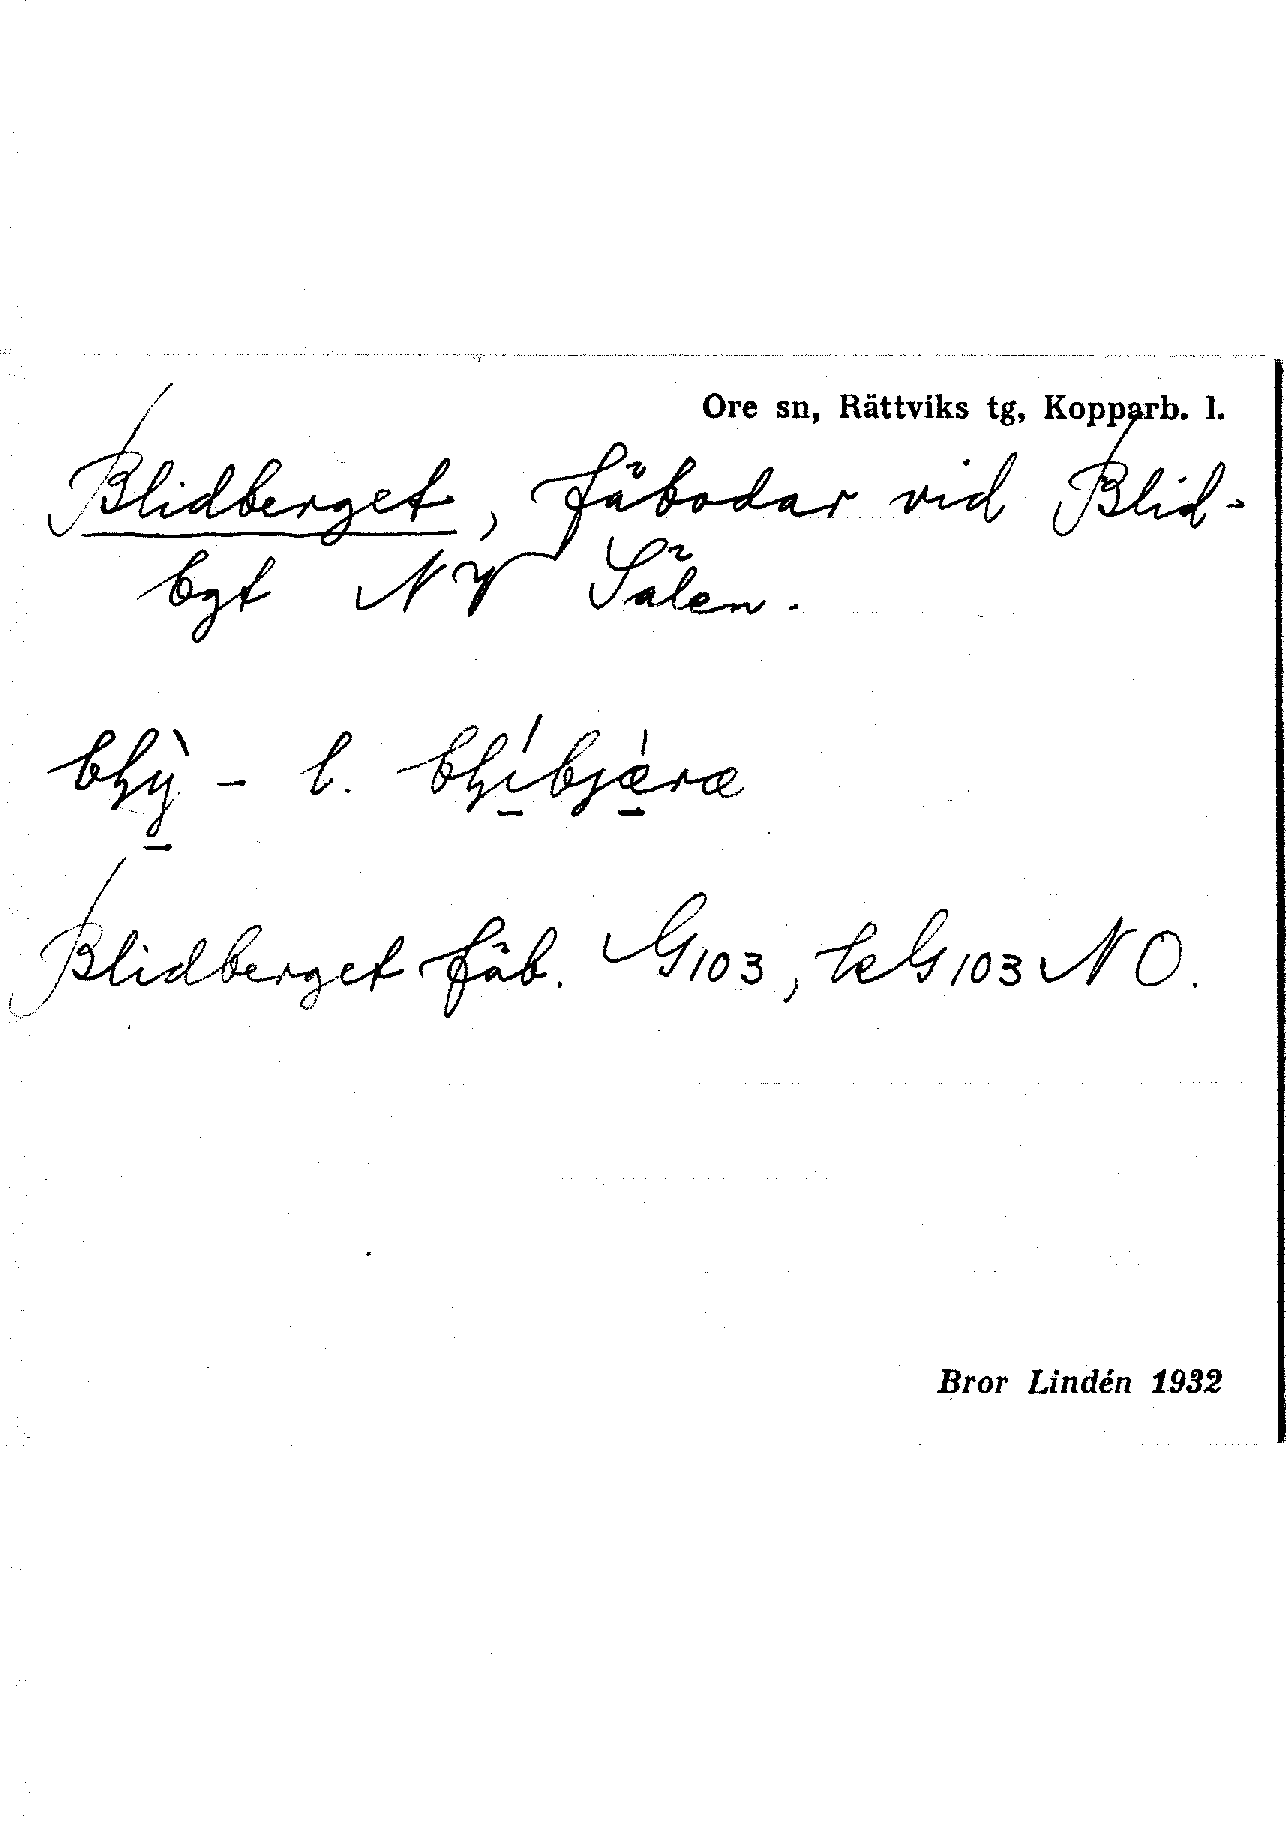 Ore sn, Rättviks tg, Kopparb. l.
Blidberget, fäbodar vid Blid-
bgt NV Sälen.
l.
Blidberget fäb. G103, kG103 NO.
Bror Lindén 1932